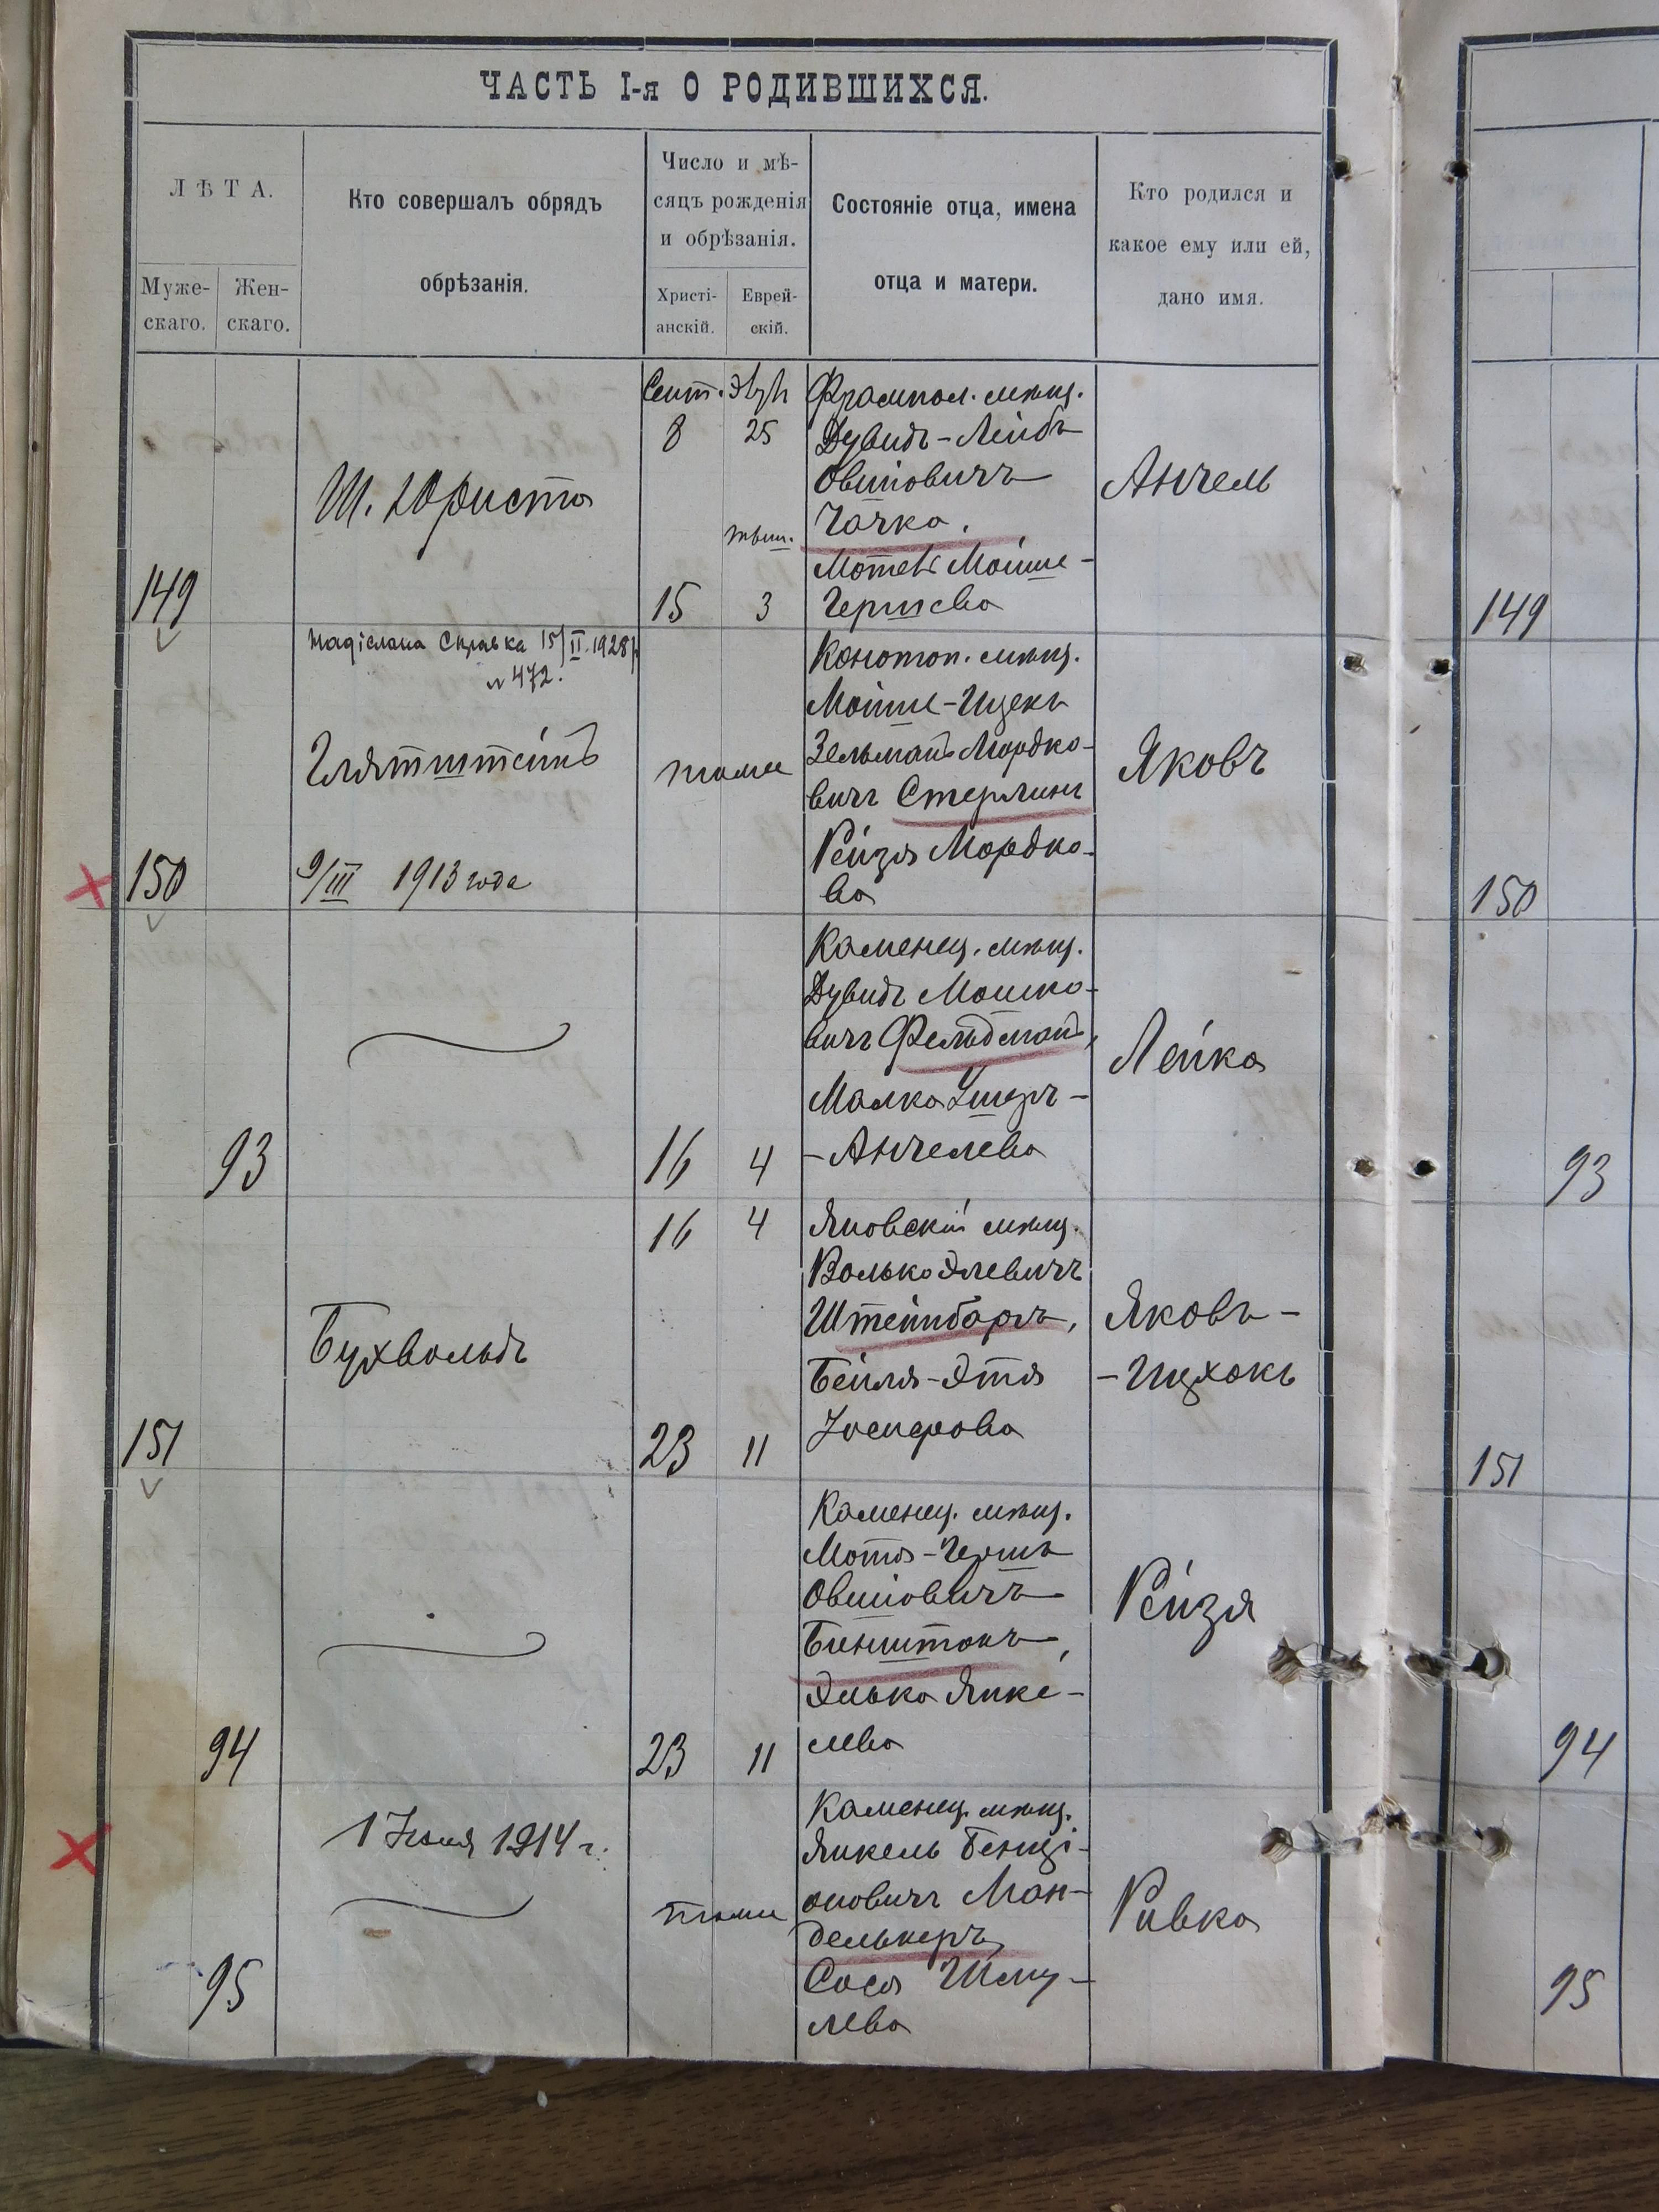 ЧАСТЬ I-я О РОДИВШИХСЯ.
ЛѢТА.
Муже-
скаго.
Жен-
скаго.
Кто совершалъ обрядъ
обрѣзанія.
Число и мѣ-
сяцъ рожденія
и обрѣзанія.
Христі-
анскій.
Еврей-
скій.
Состояніе отца, имена
отца и матери.
Кто родился и
какое ему или ей,
дано имя.
149
Ш. Юриста
Сент.
8
25
тиш.
15 3
Фрампол. мѣщ.
Дувидъ-Лейбъ
Овшіовичъ
Чачка.
Мойше-
Гершева
Анчель
149
150
Надіслана Справка 15/II.1928р
№ 472.
Глятштейнъ
9/III 1913 года
тоже
Конотоп. мѣщ.
Мойше-Ицекъ
Зельманъ Мордко-
вичъ Стерлинъ
Рейзя Мордко-
ва
Яковъ
150
93
16 4
Каменец. мѣщ.
Дувидъ Мошко-
вичъ Фельдманъ,
Малка Ушеръ-
-Анчелева
Лейка
93
151
Бухвольдъ
16 4
23 11
Яновскій мѣщ.
Волько Элевичъ
Штейнбаргъ,
Бейля-Этя
Іосифова
Яковъ-
-Ицхокъ
151
94
23 11
Каменец. мѣщ.
Мотя-Гершъ
Овшіовичъ
Бинштокъ,
Элька Янке-
лева
Рейзя
94
95
1 Іюня 1914 г.
Каменец. мѣщ.
Янкель Бенці-
оновичъ Ман-
делькеръ,
Сося Шму-
лева
Ривка
95